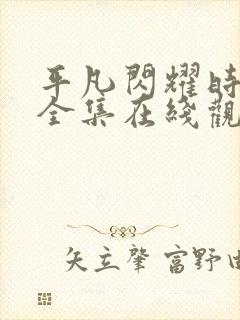 平凡閃耀時
全集在綫觀
矢立肇 富野由